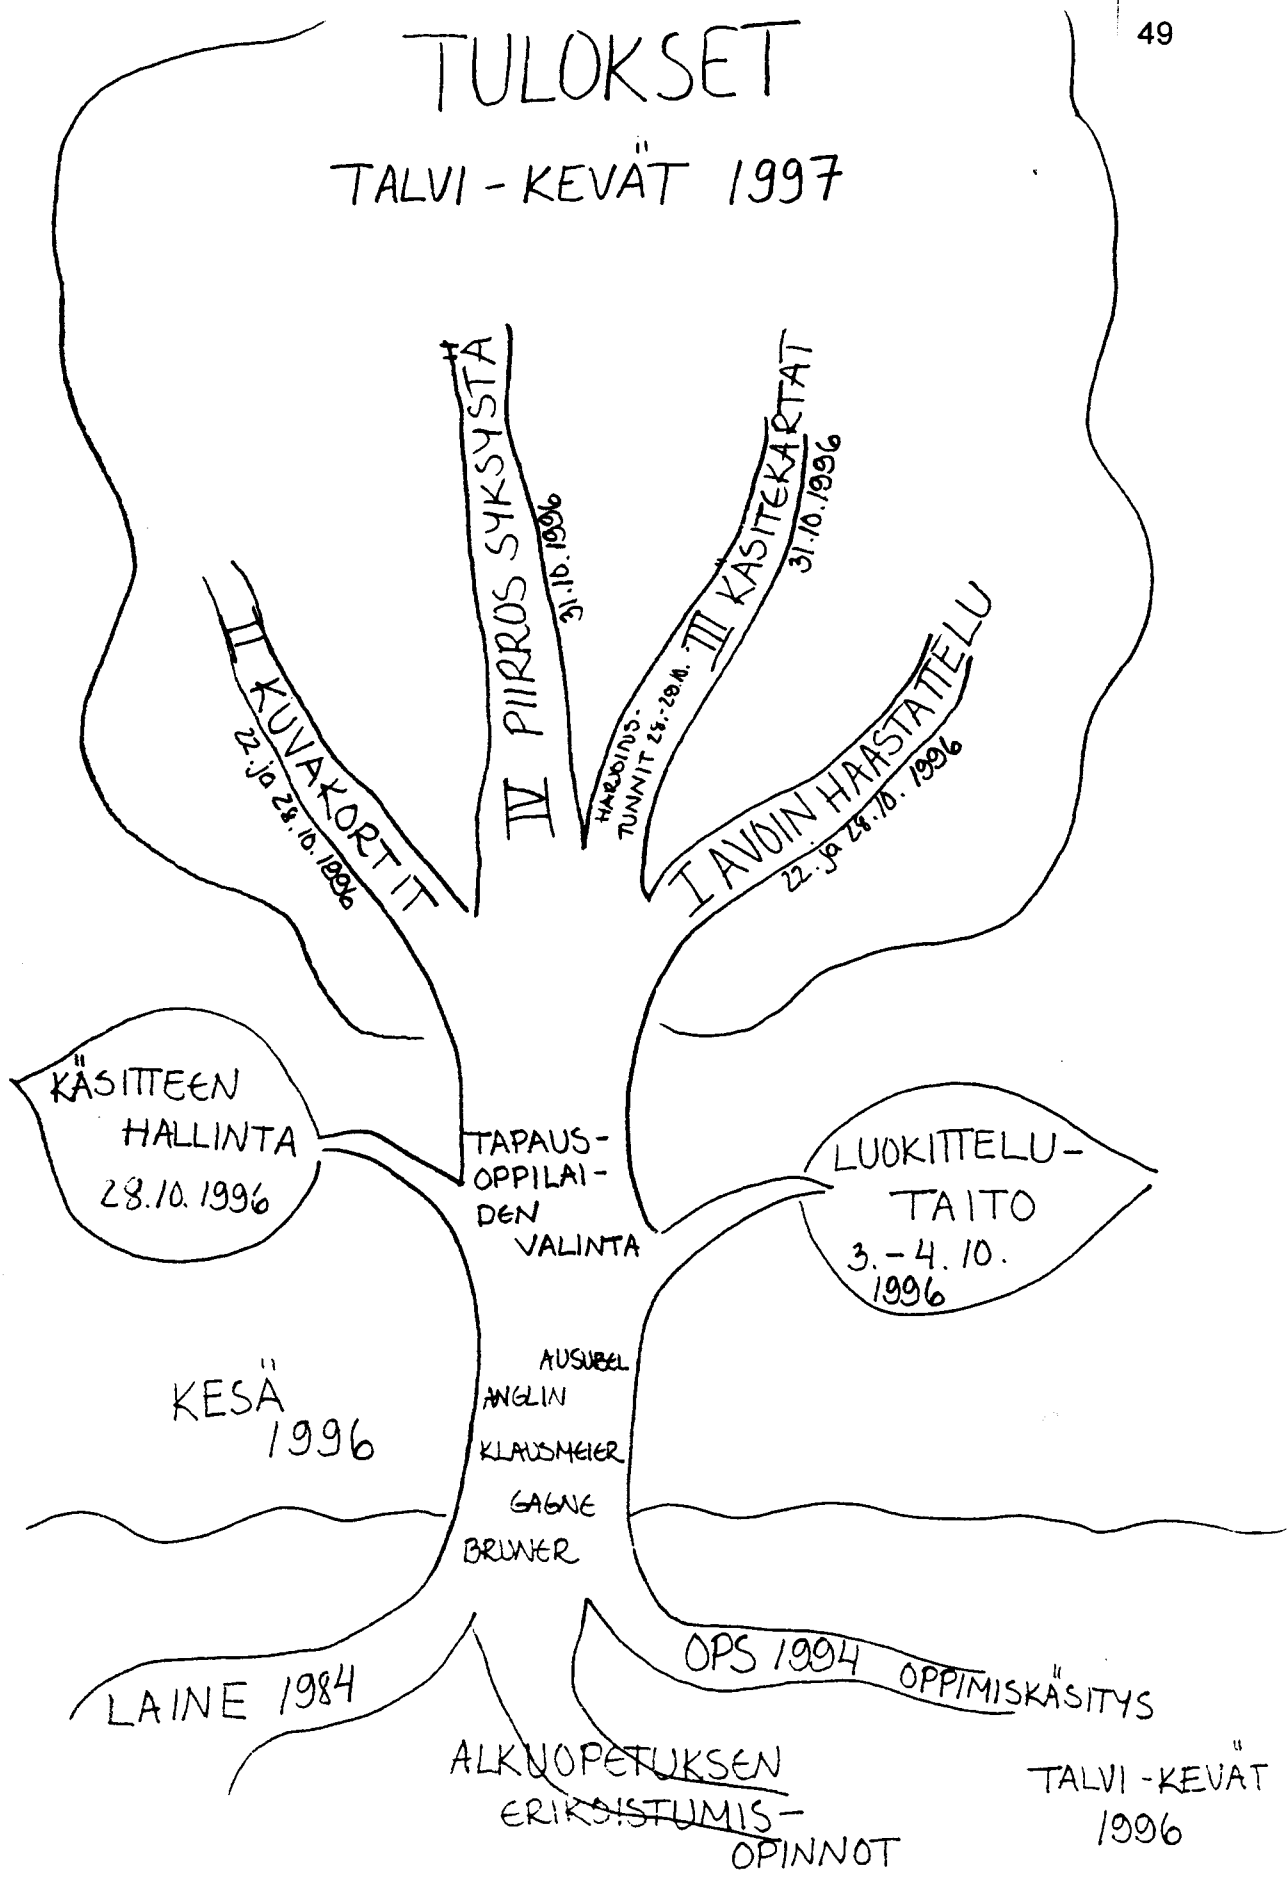 49
TULOKSET
TALVI - KEVÄT 1997
II KUVAKORTIT
22. ja 28.10.1996
IV PIIRROS SYKSYSTÄ
31.10.1996
HARJOITUS-
TUNNIT 28.-29.10.
III KÄSITEKARTAT
31.10.1996
I AVOIN HAASTATTELU
22. ja 28.10.1996
KÄSITTEEN
HALLINTA
28.10.1996
TAPAUS-
OPPILAI-
DEN
VALINTA
LUOKITTELU-
TAITO
3.-4.10.
1996
KESÄ
1996
AUSUBEL
ANGLIN
KLAUSMEIER
GAGNE
BRUNER
LAINE 1984
OPS 1994 OPPIMISKÄSITYS
ALKUOPETUKSEN
ERIKSISTUMIS-
OPINNOT
TALVI - KEVÄT
1996